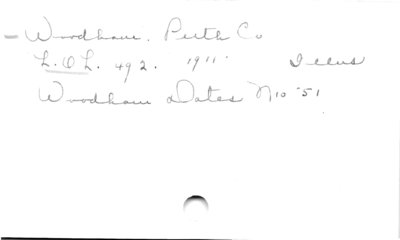 – Woodham. Perth Co
L.O.L. 492. 1911. Illus
Woodham Dates N10 '51